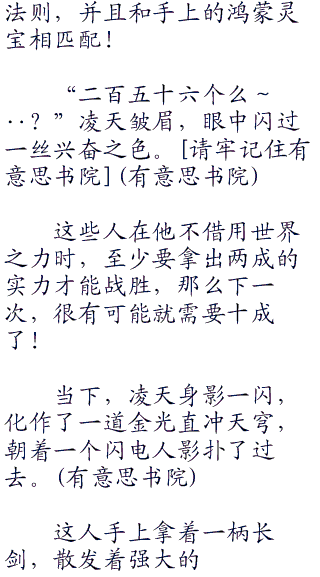 法则，并且和手上的鸿蒙灵
宝相匹配！
“二百五十六个么～
··？”凌天皱眉，眼中闪过
一丝兴奋之色。[请牢记住有
意思书院](有意思书院)
这些人在他不借用世界
之力时，至少要拿出两成的
实力才能战胜，那么下一
次，很有可能就需要十成
了！
当下，凌天身影一闪，
化作了一道金光直冲天穹，
朝着一个闪电人影扑了过
去。(有意思书院)
这人手上拿着一柄长
剑，散发着强大的